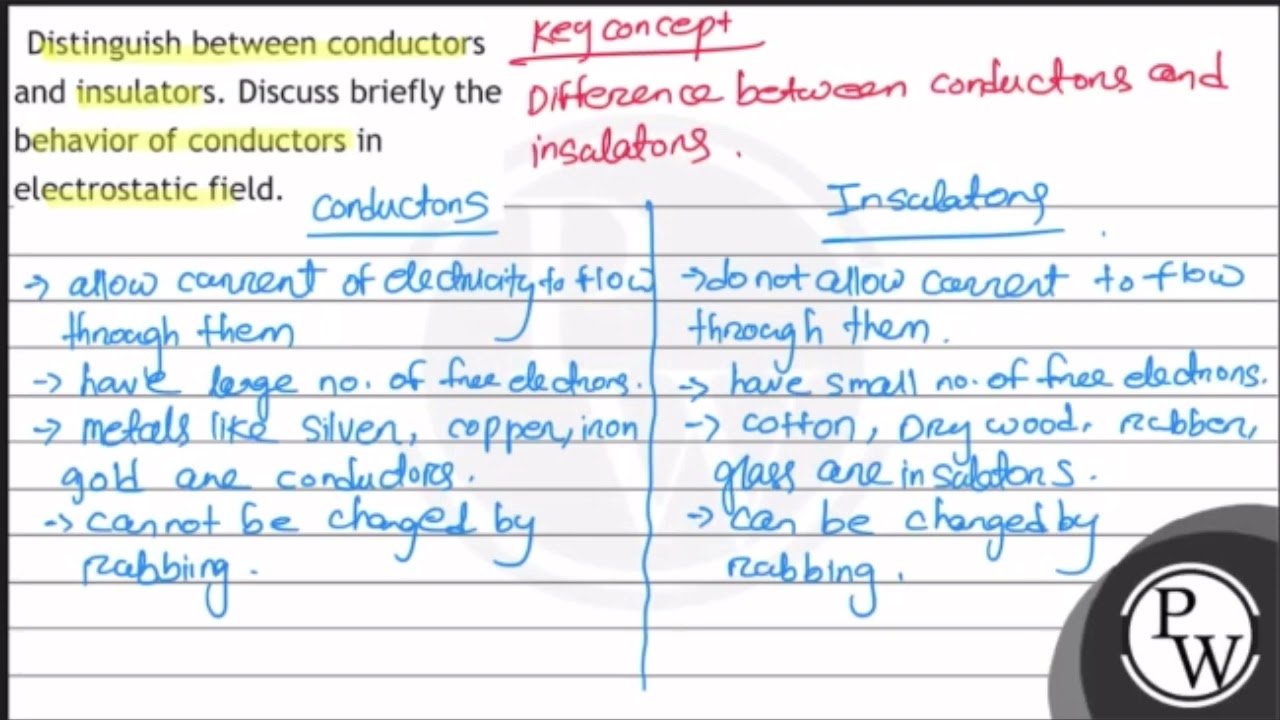 Distinguish between conductors
and insulators. Discuss briefly the
behavior of conductors in
electrostatic field.
Key concept
Difference between conductors and
insulators.
Conductors
→ allow current of electricity to flow
through them
→ have large no. of free electrons.
→ metals like silver, copper, iron
gold are conductors.
→ cannot be changed by
rubbiing.
Insulators
→ do not allow current to flow
through them.
→ have small no. of free electrons.
→ cotton, Dry wood, rubber,
glass are insulators.
→ can be changed by
rubbing.
PW